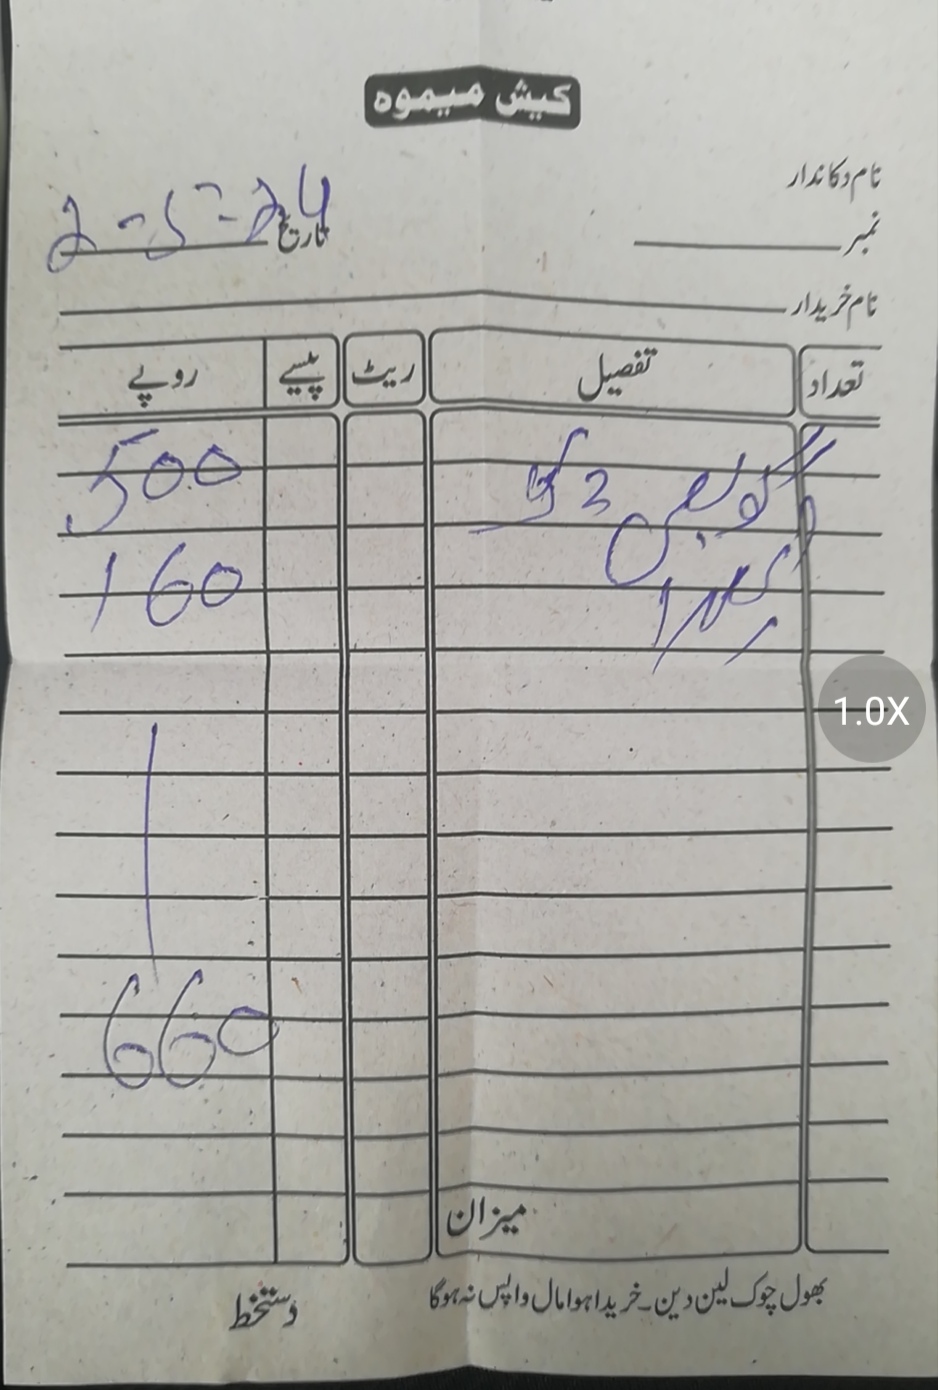 کیش میمو
نام دکاندار
نمبر
تاریخ 2-5-24
نام خریدار
تعداد تفصیل ریٹ پیسے روپے
2 500
160
660
میزان
بھول چوک لین دین۔ خریدا ہوا مال واپس نہ ہوگا
دستخط
1.0X